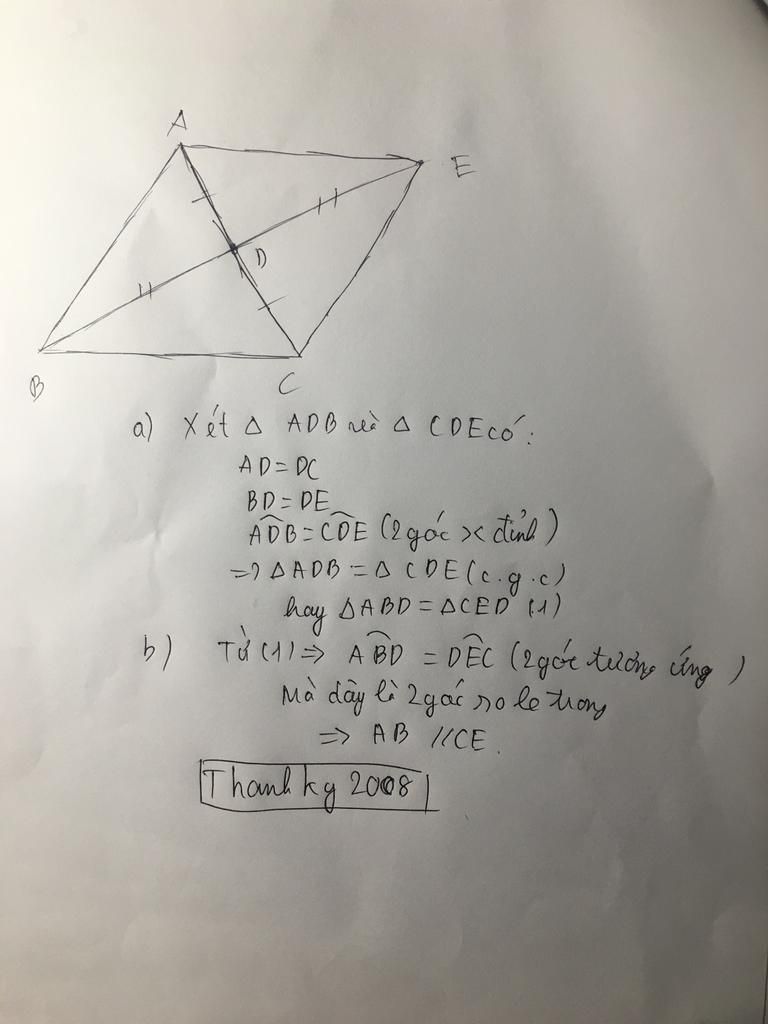 A
E
D
B
C
a) Xét Δ ADB và Δ CDE có:
AD = DC
BD = DE
\widehat{ADB} = \widehat{CDE} (2 góc >< đỉnh)
=> Δ ADB = Δ CDE (c.g.c)
hay Δ ABD = Δ CED (1)
b) Từ (1) => \widehat{ABD} = \widehat{DEC} (2 góc tương ứng)
Mà đây là 2 góc so le trong
=> AB // CE.
Thanh ky 2008